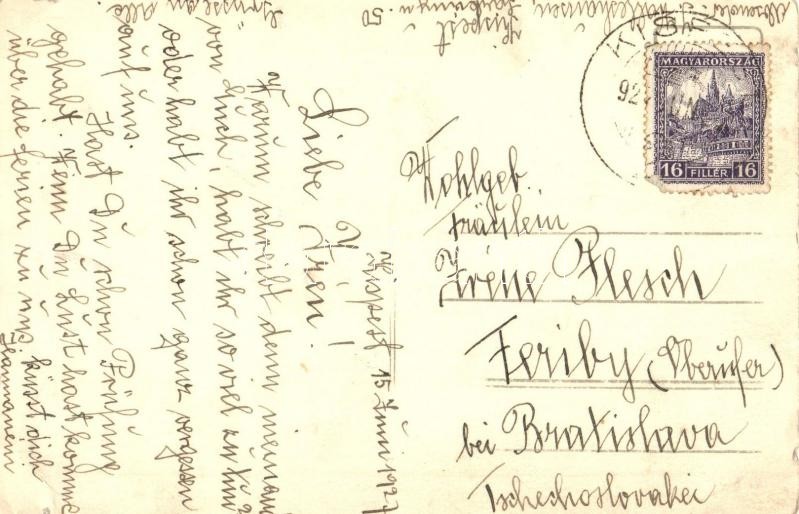 Kispest 15 Juni 1927
Liebe Iren!
Warum schreibt denn niemand
von Euch, habt ihr so viel zu tun
oder habt ihr schon ganz vergessen
auf uns.
Hast Du schon Prüfung
gehabt. Wenn Du Lust hast komme
über die Ferien zu uns, küsst dich
Grüsse an alle
Kispest
50
MAGYARORSZÁG
16 FILLÉR 16
KISP
92
Wohlgeb.
Fräulein
Iréne Flesch
Feriby (Oberufer)
bei Bratislava
Tschechoslovakei